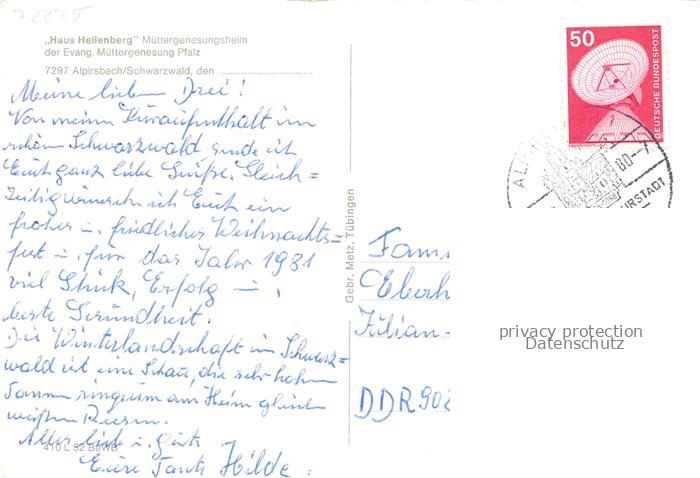 72275
„Haus Heilenberg" Müttergenesungsheim
der Evang. Müttergenesung Pfalz
7297 Alpirsbach/Schwarzwald, den
Meine lieben Drei!
Von meinem Kuraufenthalt im
schönen Schwarzwald sende ich
Euch ganz liebe Grüße. Gleich=
zeitig wünsche ich Euch ein
frohes u. friedliches Weihnachts=
fest u. für das Jahr 1981
viel Glück, Erfolg u.
beste Gesundheit.
Die Winterlandschaft im Schwarz=
wald ist eine Schau, die sehr hohen
Tannen ringsum am Heim gleich
weißen Riesen.
Alles liebe u. gute
Eure Tante Hilde.
410 L 92 B6WB
Gebr. Metz, Tübingen
50
DEUTSCHE BUNDESPOST
ALPI
80-7
URSTADT
Fam
Eberh
Julian-
DDR 902
privacy protection
Datenschutz